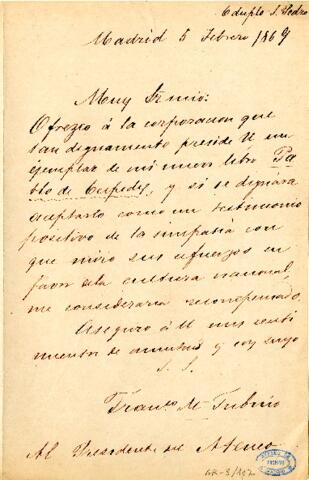 Madrid 5 Febrero 1869
Muy Sr mio:
Ofrezco á la corporacion que
tan dignamente preside U un
ejemplar de mi nuevo libro Pa
blo de Cespedes, y si se dignára
aceptarlo como un testimonio
positivo de la simpatía con
que miro sus esfuerzos en
favor de la cultura nacional,
me consideraria recompensado.
Aseguro á U mis senti
mientos de amistad y soy suyo
S. S.
Franco M Tubino
Al Presidente del Ateneo
GR-3/112